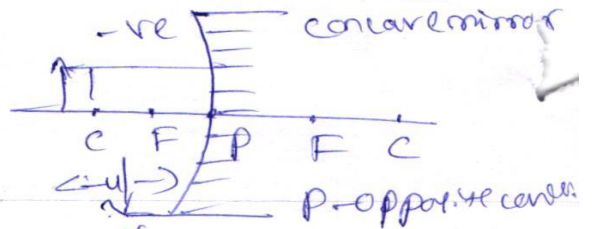 -ve concave mirror
C F P F C
-u
P-opposite